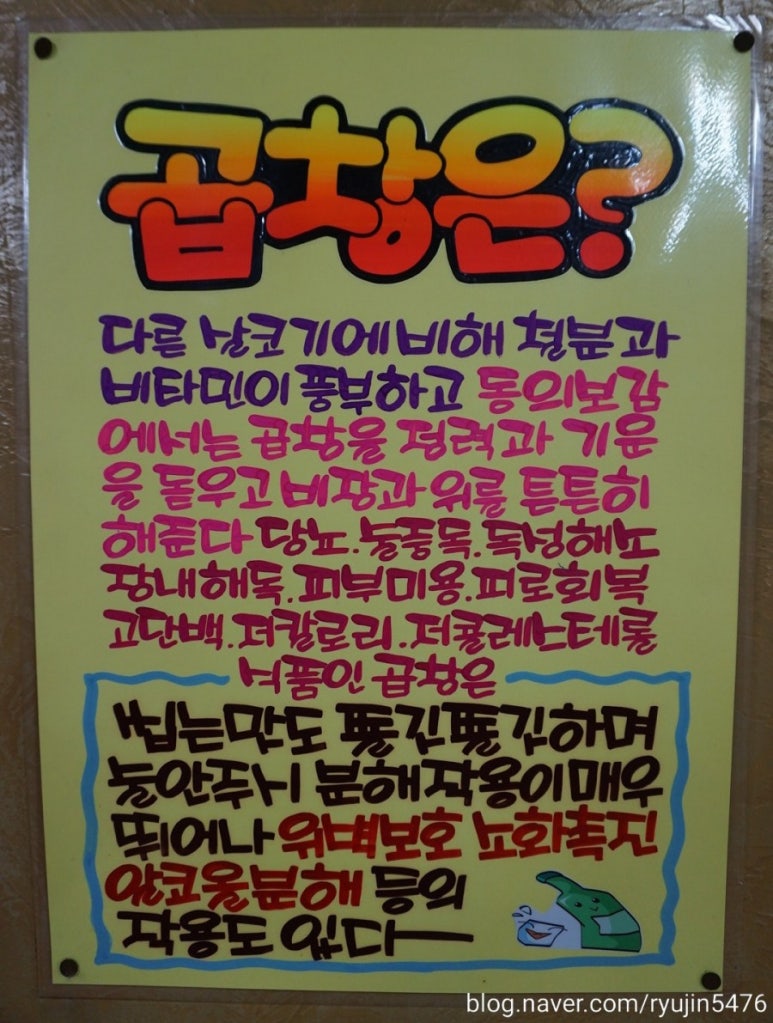 곱창은?
다른 살코기에 비해 철분과
비타민이 풍부하고 동의보감
에서는 곱창을 정력과 기운
을 돋우고 비장과 위를 튼튼히
해준다 당뇨.술중독.독성해소
장내해독.피부미용.피로회복
고단백.저칼로리.저콜레스테롤
식품인 곱창은
씹는맛도 쫄깃쫄깃하며
술안주시 분해작용이 매우
뛰어나 위벽보호 소화촉진
알코올분해 등의
작용도 있다
blog.naver.com/ryujin5476